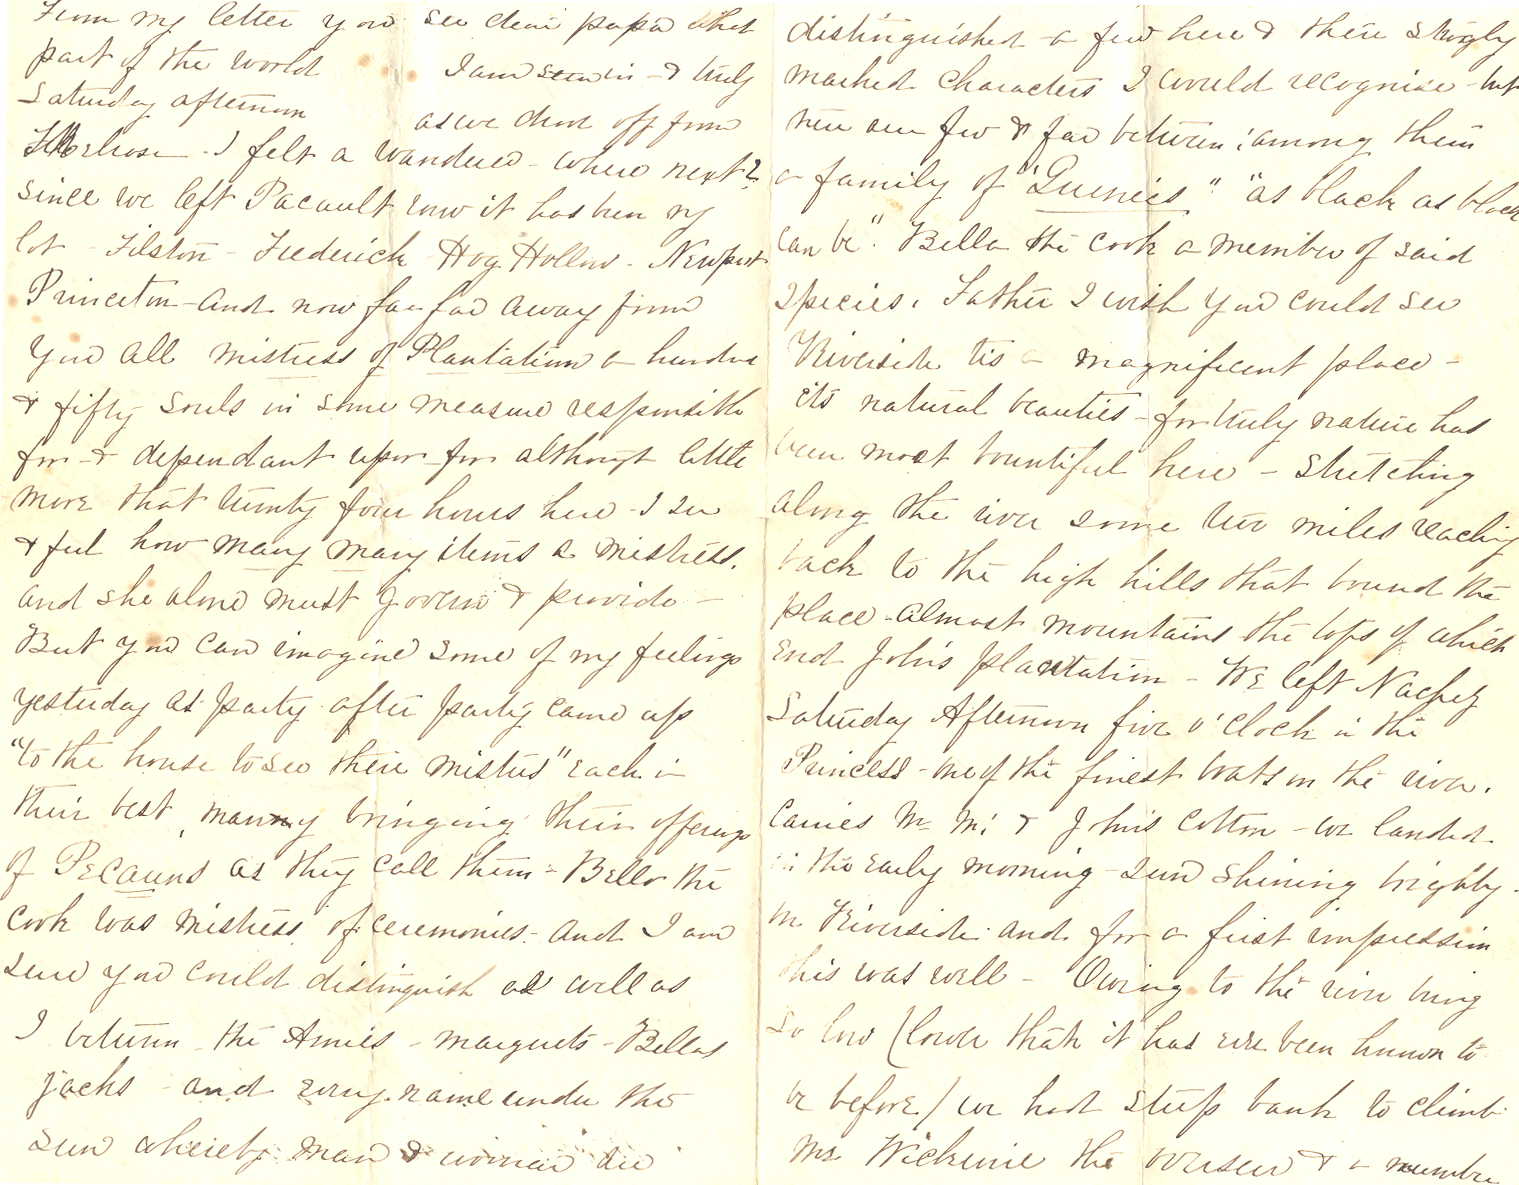 From my letter you see dear papa what
part of the world I am seeing in - & truly
Saturday afternoon as we drove off from
Melrose - I felt a wanderer - where next?
since we left Pacault row it has been my
lot - Filston - Frederick Hog Hollow - Newport
Princeton - and now far far away from
you all mistress of Plantation a hundred
& fifty souls in some measure responsible
for - & dependant upon - for although little
more that twenty four hours here - I see
& feel how many many items a mistress.
and she alone must govern & provide -
But you can imagine some of my feelings
yesterday as party after party came up
"to the house to see their mistus" each in
their best, many bringing their offerings
of Pecauns as they call them - Bella the
cook was mistress of ceremonies - and I am
sure you could distinguish as well as
I between the Annies - margrets - Bellas
jacks - and every name under the
sun whereby man & woman are
distinguished - a few here & there strongly
marked characters I would recognise - but
few & far between: among them
a family of "Guineis" "as black as black
can be". Bella the cook a member of said
species. Father I wish you could see
Riverside tis a magnificent place -
its natural beauties - for truly nature has
been most bountiful here - stretching
along the river some two miles reaching
back to the high hills that bound the
place - almost mountains the tops of which
end John's plantation - We left Nachez
Saturday Afternoon five o'clock in the
Princess - one of the finest boats on the river.
carries Mr M; & John's cotton - we landed
in the early morning - sun shining brightly -
on Riverside and for a first impression
this was well - Owing to the river being
so low (lower than it has ever been known to
be before) we had steep bank to climb
Mr. the overseer & a number